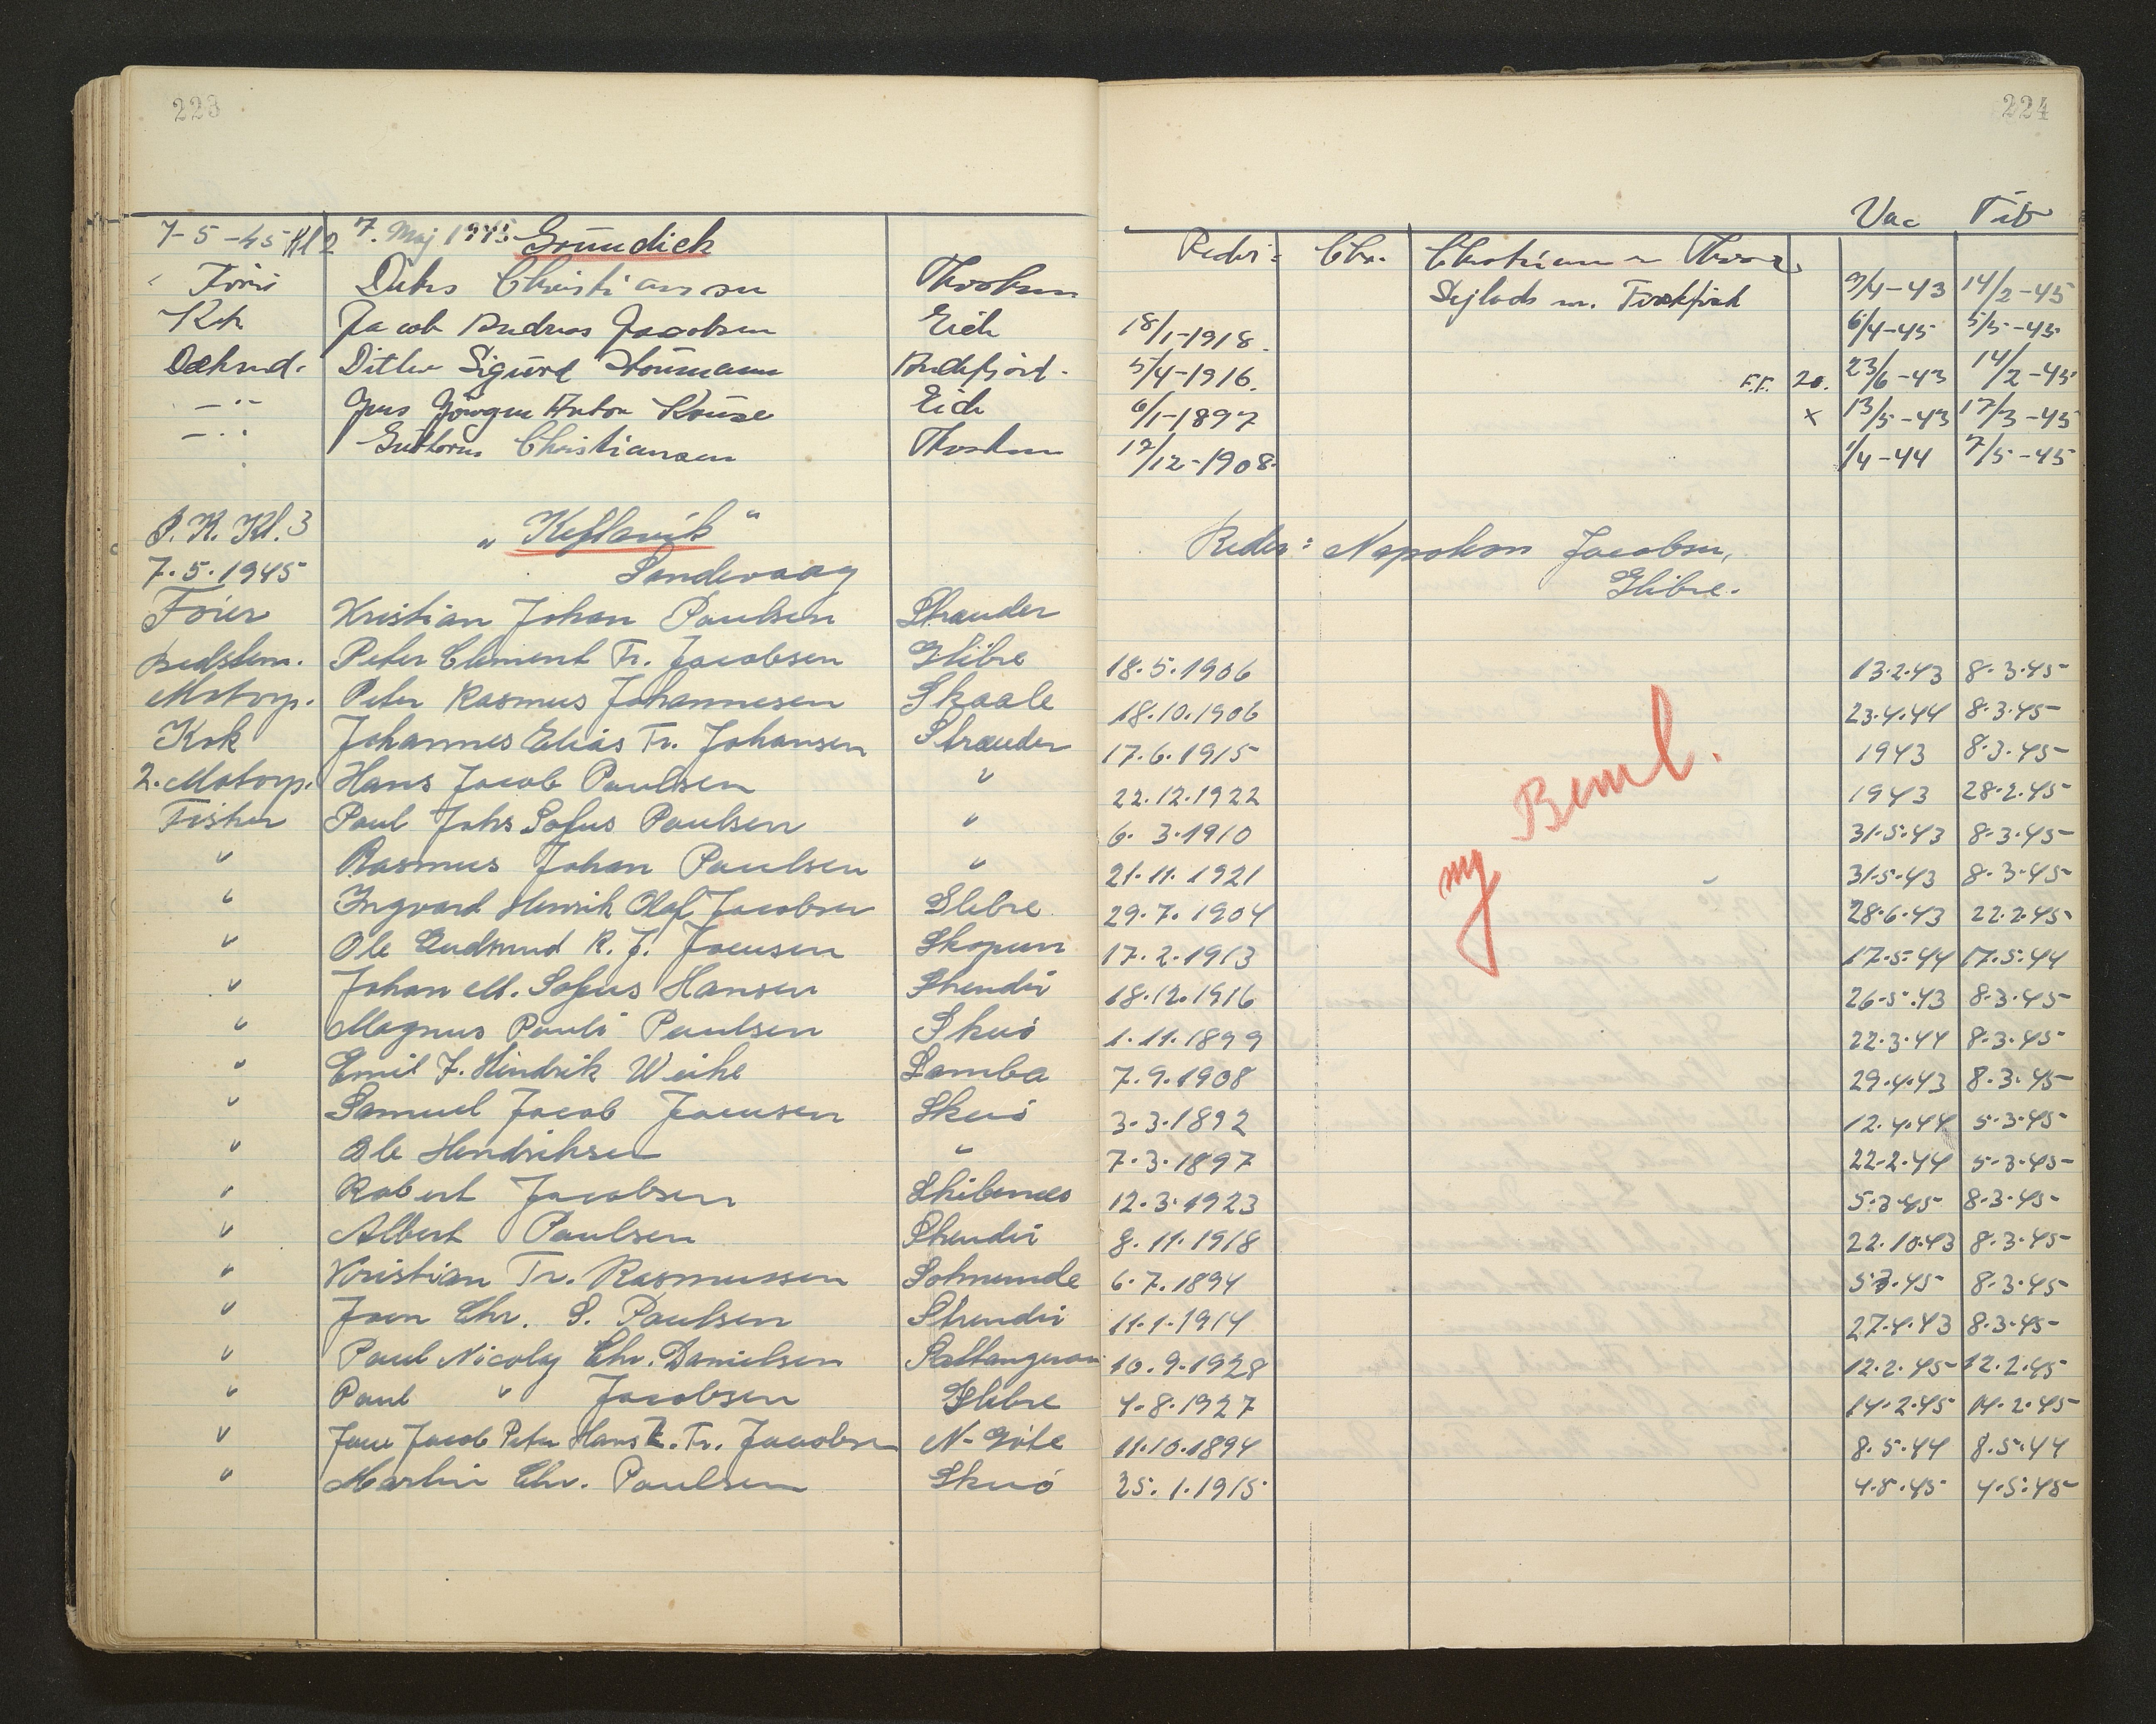 223
7-5-45 Kl 2 7. Maj 1945 Grundick Reder: Chr. Vac Tub
Förer Christiansen Sejlads m. 9/4-43 14/2-45
Kok Jacob Andreas Jacobsen Eide 18/1-1918. 6/4-45 5/5-45
Dækmd. Ditlev Sigurd Andefjord. 5/4-1916. F.F. 20. 23/6-43 14/2-45
-"- Jens Jörgen Anton Kruse Eide 6/1-1897 x 13/5-43 17/3-45
-"- Guttorm Christiansen 17/12-1908. 1/4-44 7/5-45
P.K. Kl. 3 "Keflavik" Reder: Napoleon Jacobsen,
7.5.1945 Sandevaag Glibre.
Förer Kristian Johan Paulsen Strænder
Bedstem. Peter Clement Fr. Jacobsen Glibre 18.5.1906 13.2.43 8.3.45
Motorp. Peter Rasmus Johannesen Skaale 18.10.1906 23.4.44 8.3.45
Kok Johannes Elias Fr. Johansen Strænder 17.6.1915 1943 8.3.45
2. Motorp. Hans Jacob Paulsen " 22.12.1922 1943 28.2.45
Fisker Paul Johs Sofus Paulsen " 6.3.1910 31.5.43 8.3.45
" Rasmus Johan Paulsen " 21.11.1921 31.5.43 8.3.45
" Ingvard Henrik Olaf Jacobsen Glibre 29.7.1904 28.6.43 22.2.45
" Ole Gudmund R. J. Joensen Skopun 17.2.1913 17.5.44 17.5.44
" Johan M. Sofus Hansen Strendir 18.12.1916 26.5.43 8.3.45
" Magnus Pauli Paulsen Skuö 1.11.1899 22.3.44 8.3.45
" Emil J. Hindrik Weihe Lamba 7.9.1908 29.4.43 8.3.45
" Samuel Jacob Joensen Skuö 3.3.1892 12.4.44 5.3.45
" Ole Hendriksen " 7.3.1897 22.2.44 5.3.45
" Robert Jacobsen Skibenes 12.3.1923 5.3.45 8.3.45
" Albert Paulsen Strendir 8.11.1918 22.10.43 8.3.45
" Kristian Fr. Rasmussen Solmunde 6.7.1894 5.3.45 8.3.45
" Joen Chr. S. Paulsen Strendir 11.1.1914 27.4.43 8.3.45
" Paul Nicolaj Chr. Danielsen Saltangeraa 10.9.1928 12.2.45 12.2.45
" Paul " Jacobsen Glibre 4.8.1927 14.2.45 14.2.45
" Jacob Peter Hans Fr. Jacobsen N-Göte 11.10.1894 8.5.44 8.5.44
" Martin Chr. Paulsen Skuö 25.1.1915 4.5.45 4.5.45
224